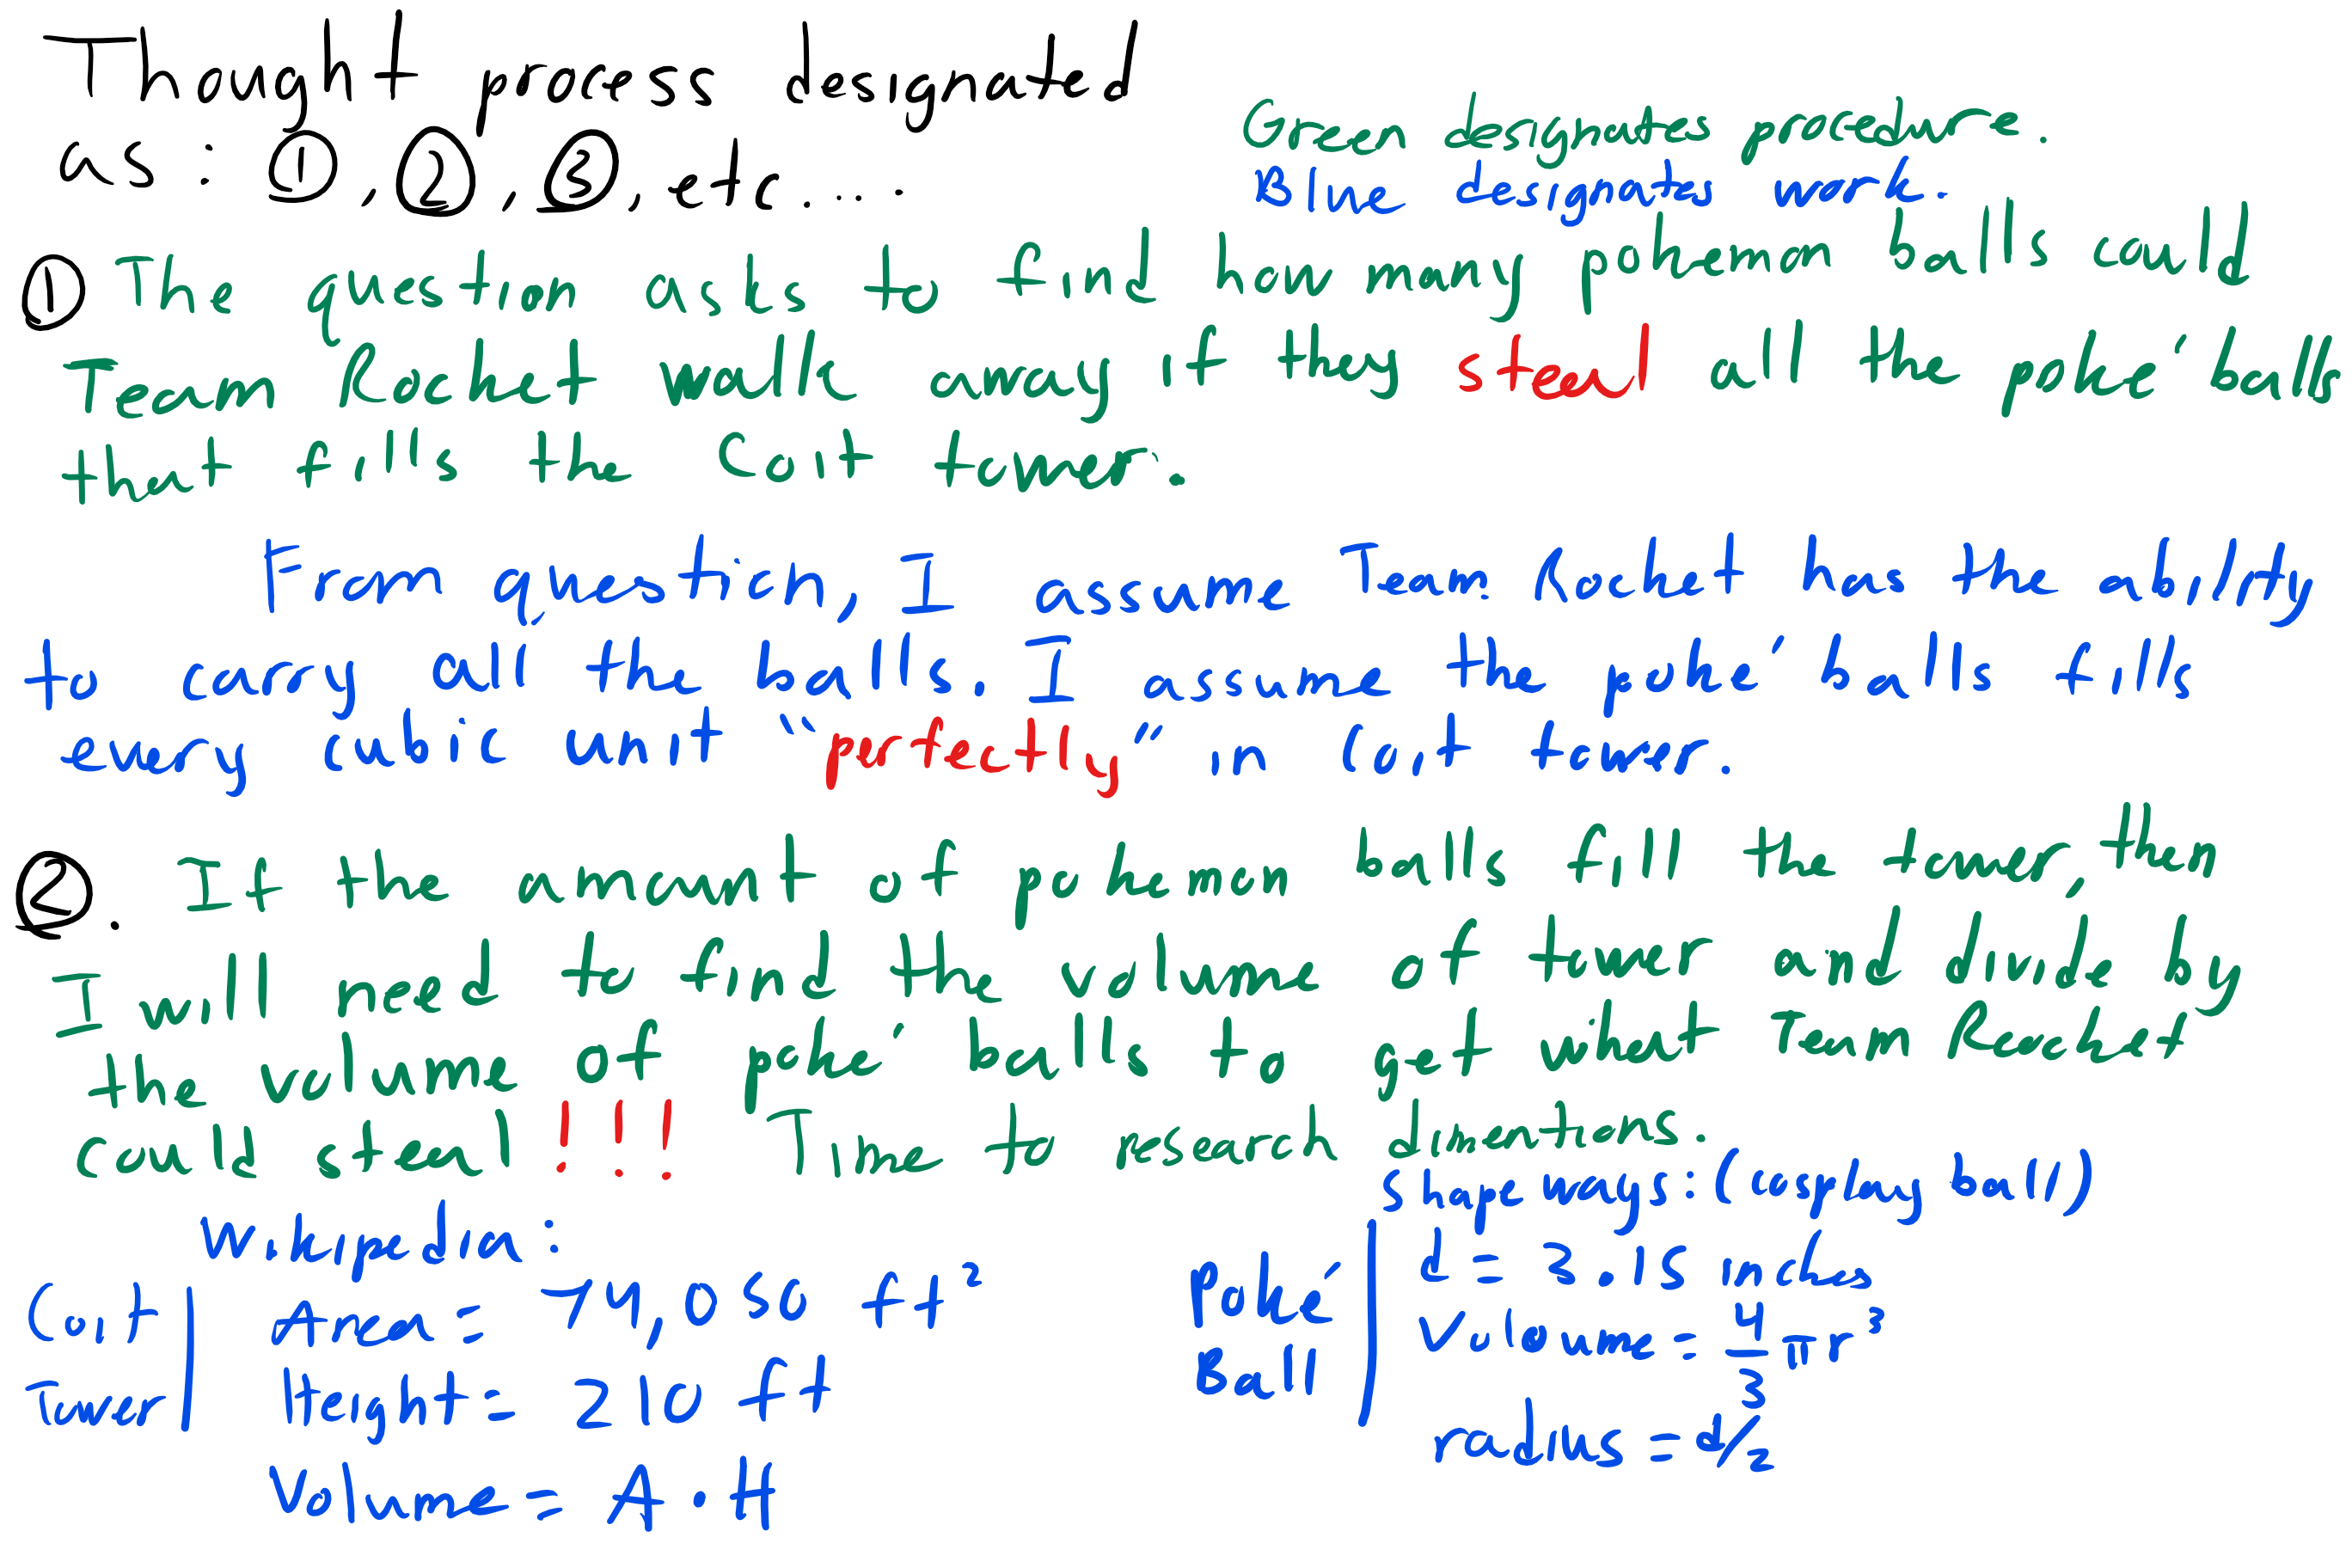 Thought process designated
as: ①, ②, ③, etc....
Green designates procedure.
Blue designates work.
① The question asks to find how many pokemon balls could
Team Rocket walk away if they steal all the poke' balls
that fills the Coit tower.
From question, I assume Team Rocket has the ability
to carry all the balls. I assume the poke' balls fills
every cubic unit "perfectly" in Coit tower.
②. If the amount of pokemon balls fill the tower, then
I will need to find the volume of tower and divide by
the volume of poke' balls to get what Team Rocket
could steal !!! Time to research dimentions.
Wikipedia:
Coit Tower
Area = 74,050 ft²
Height = 210 ft
Volume = A · H
Shapeways: (cosplay ball)
Poke' Ball
d = 3.15 inches
Volovume = 4/3 π r³
radius = d/2